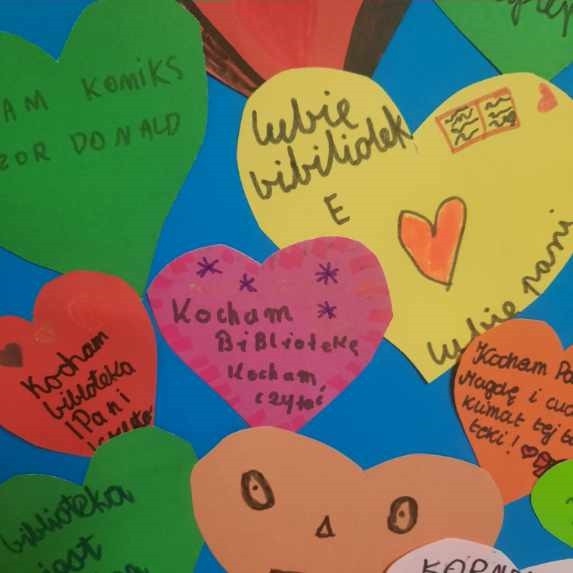 AM KOMIKS
ZOR DONALD
lubie
bibiliotek
E
lubie pani
Kocham
BiBLiotekę
Kocham
czytać
Kocham
bibloteka
Pani
Kocham Pa
Magdę i cud
Klimat tej b
teki!
biblioteka
jest
KORN